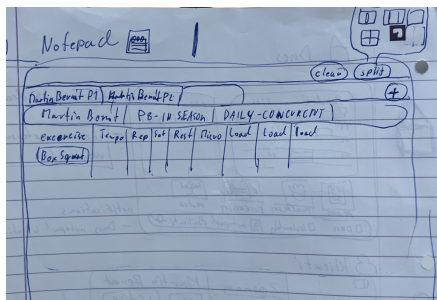 Notepad
clean split
Martin Bernit P1 Martin Bernit P2 +
Martin Bernit PB-IN SEASON DAILY-CONCURENT
excercise Tempo Rep Set Rest Micro Load Load Load
Box Squat